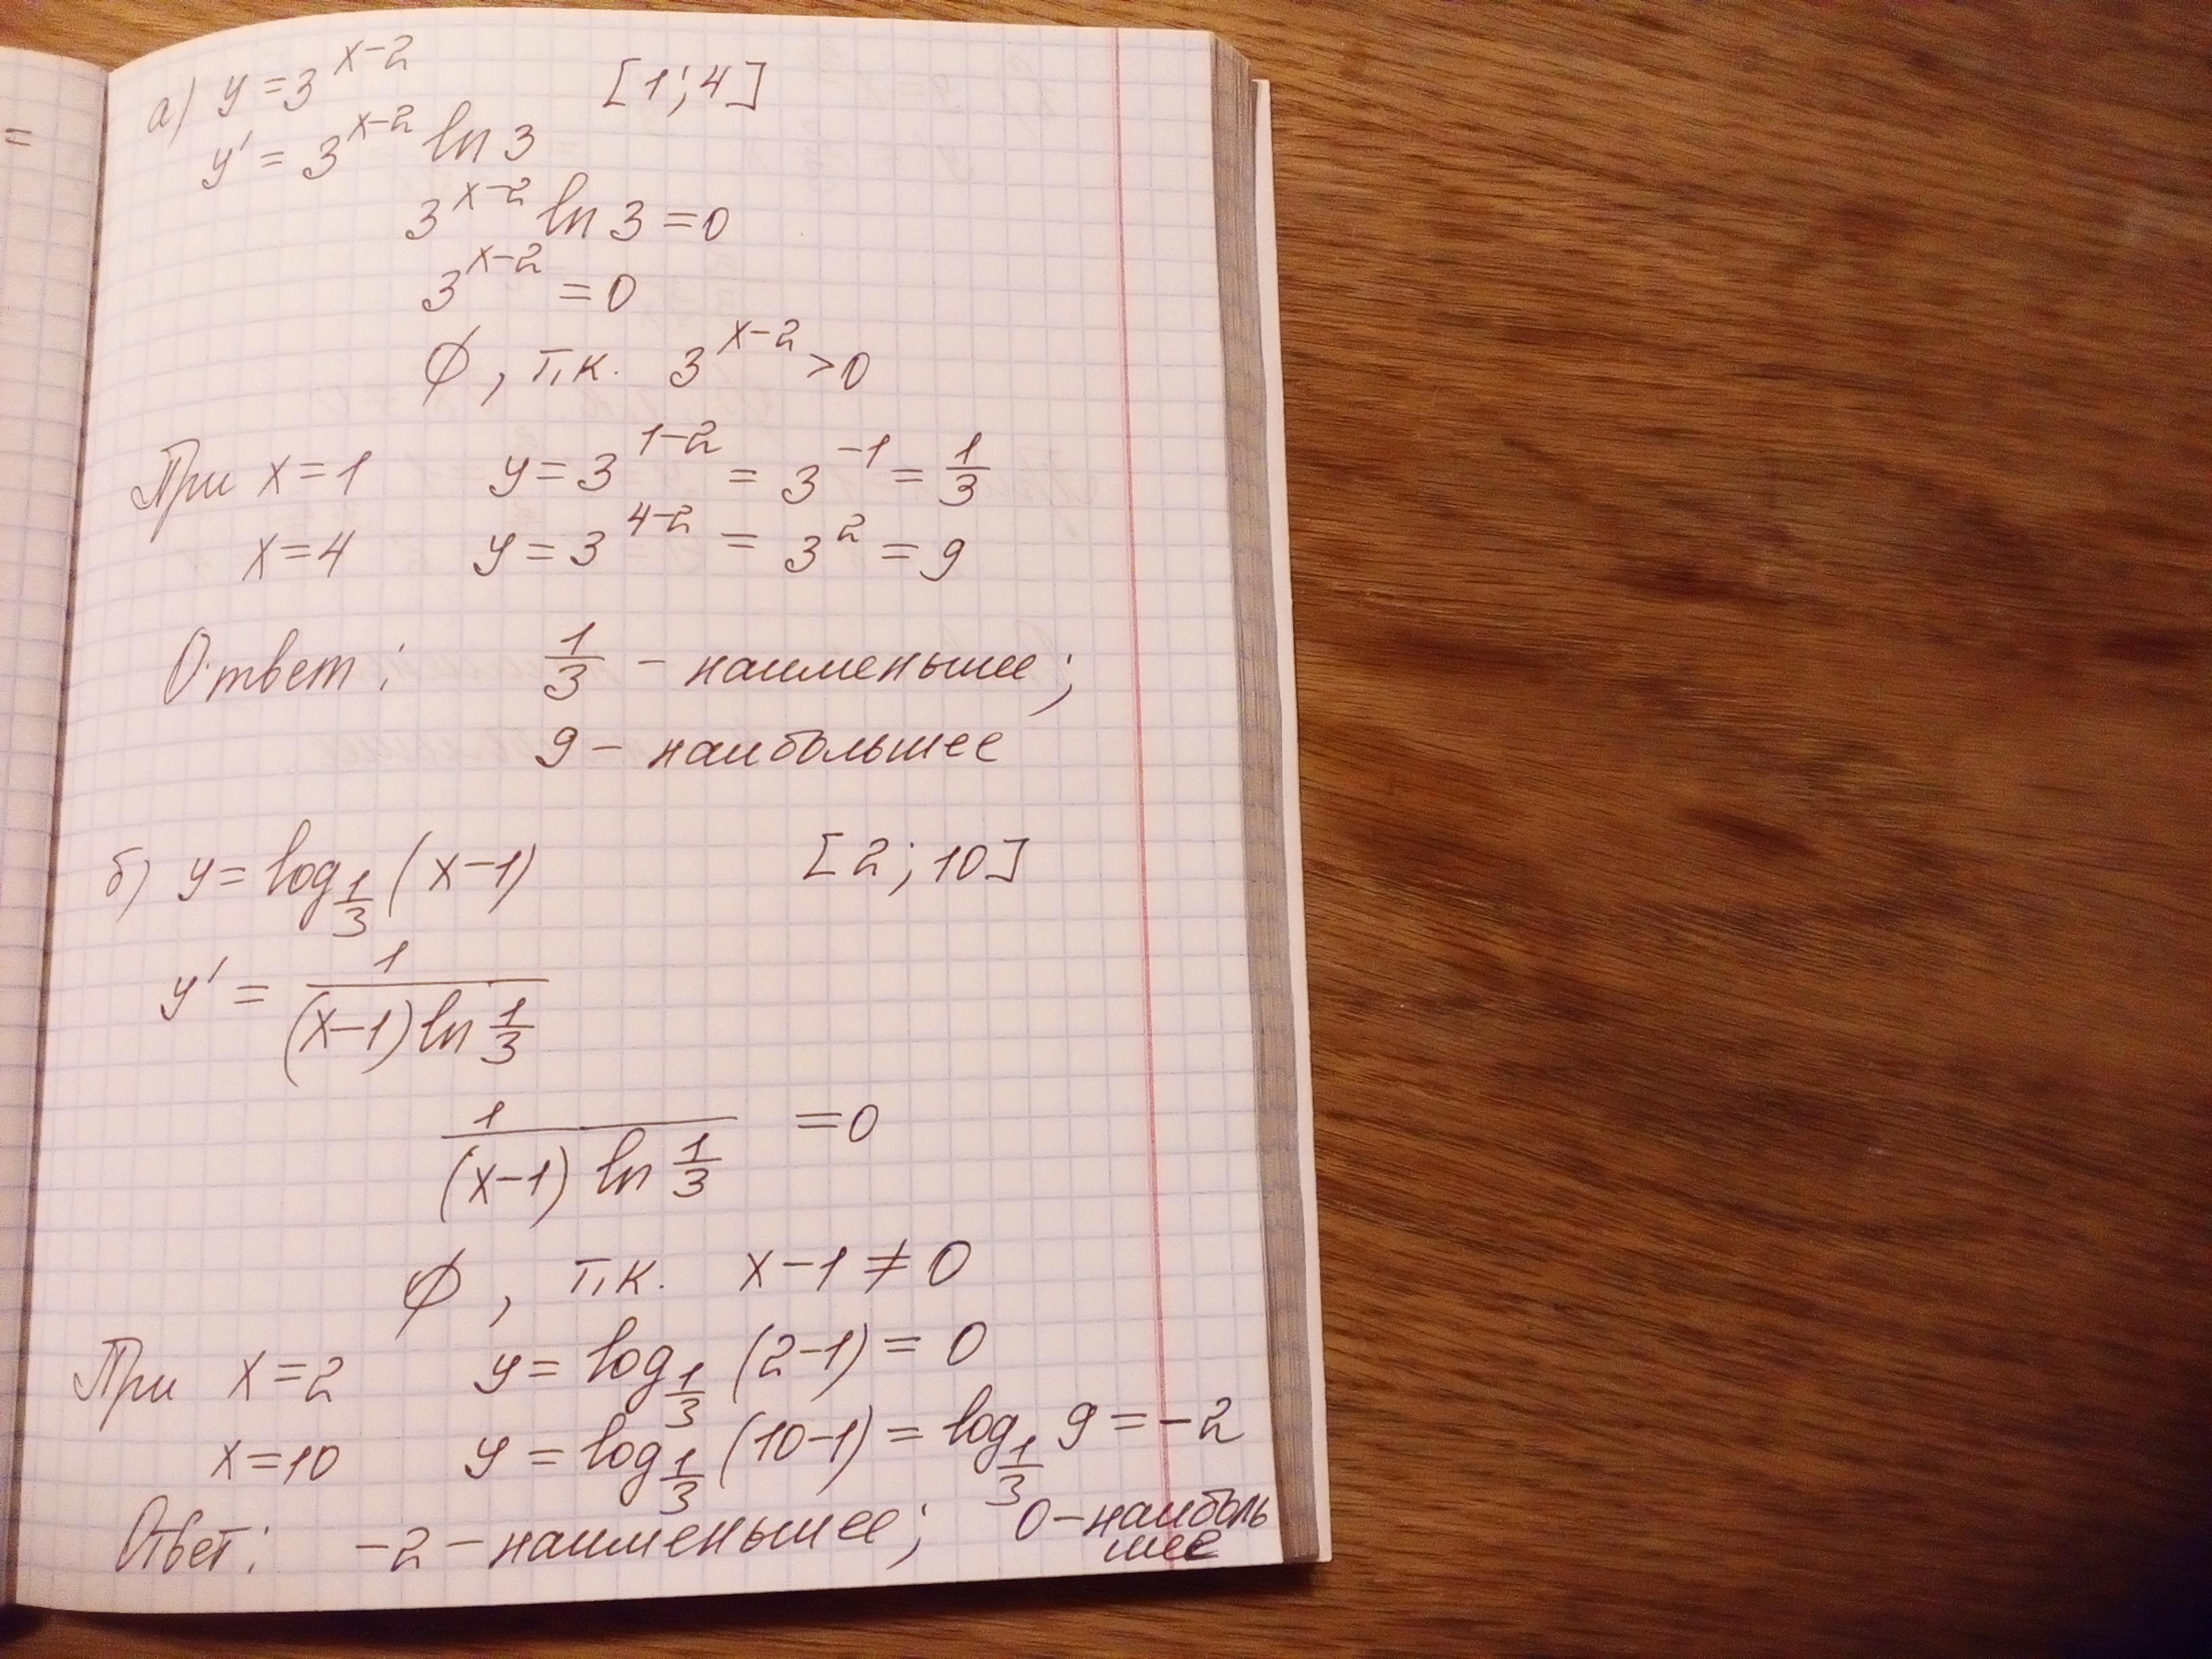 =
а) y = 3^{x-2} [1; 4]
y' = 3^{x-2} ln 3
3^{x-2} ln 3 = 0
3^{x-2} = 0
∅, т.к. 3^{x-2} > 0
При x = 1 y = 3^{1-2} = 3^{-1} = 1/3
x = 4 y = 3^{4-2} = 3^2 = 9
Ответ: 1/3 – наименьшее;
9 – наибольшее
б) y = log_{1/3} (x-1) [2; 10]
y' = 1/((x-1) ln 1/3)
1/((x-1) ln 1/3) = 0
∅, т.к. x-1 ≠ 0
При x = 2 y = log_{1/3} (2-1) = 0
x = 10 y = log_{1/3} (10-1) = log_{1/3} 9 = -2
Ответ: -2 – наименьшее; 0 – наиболь
шее